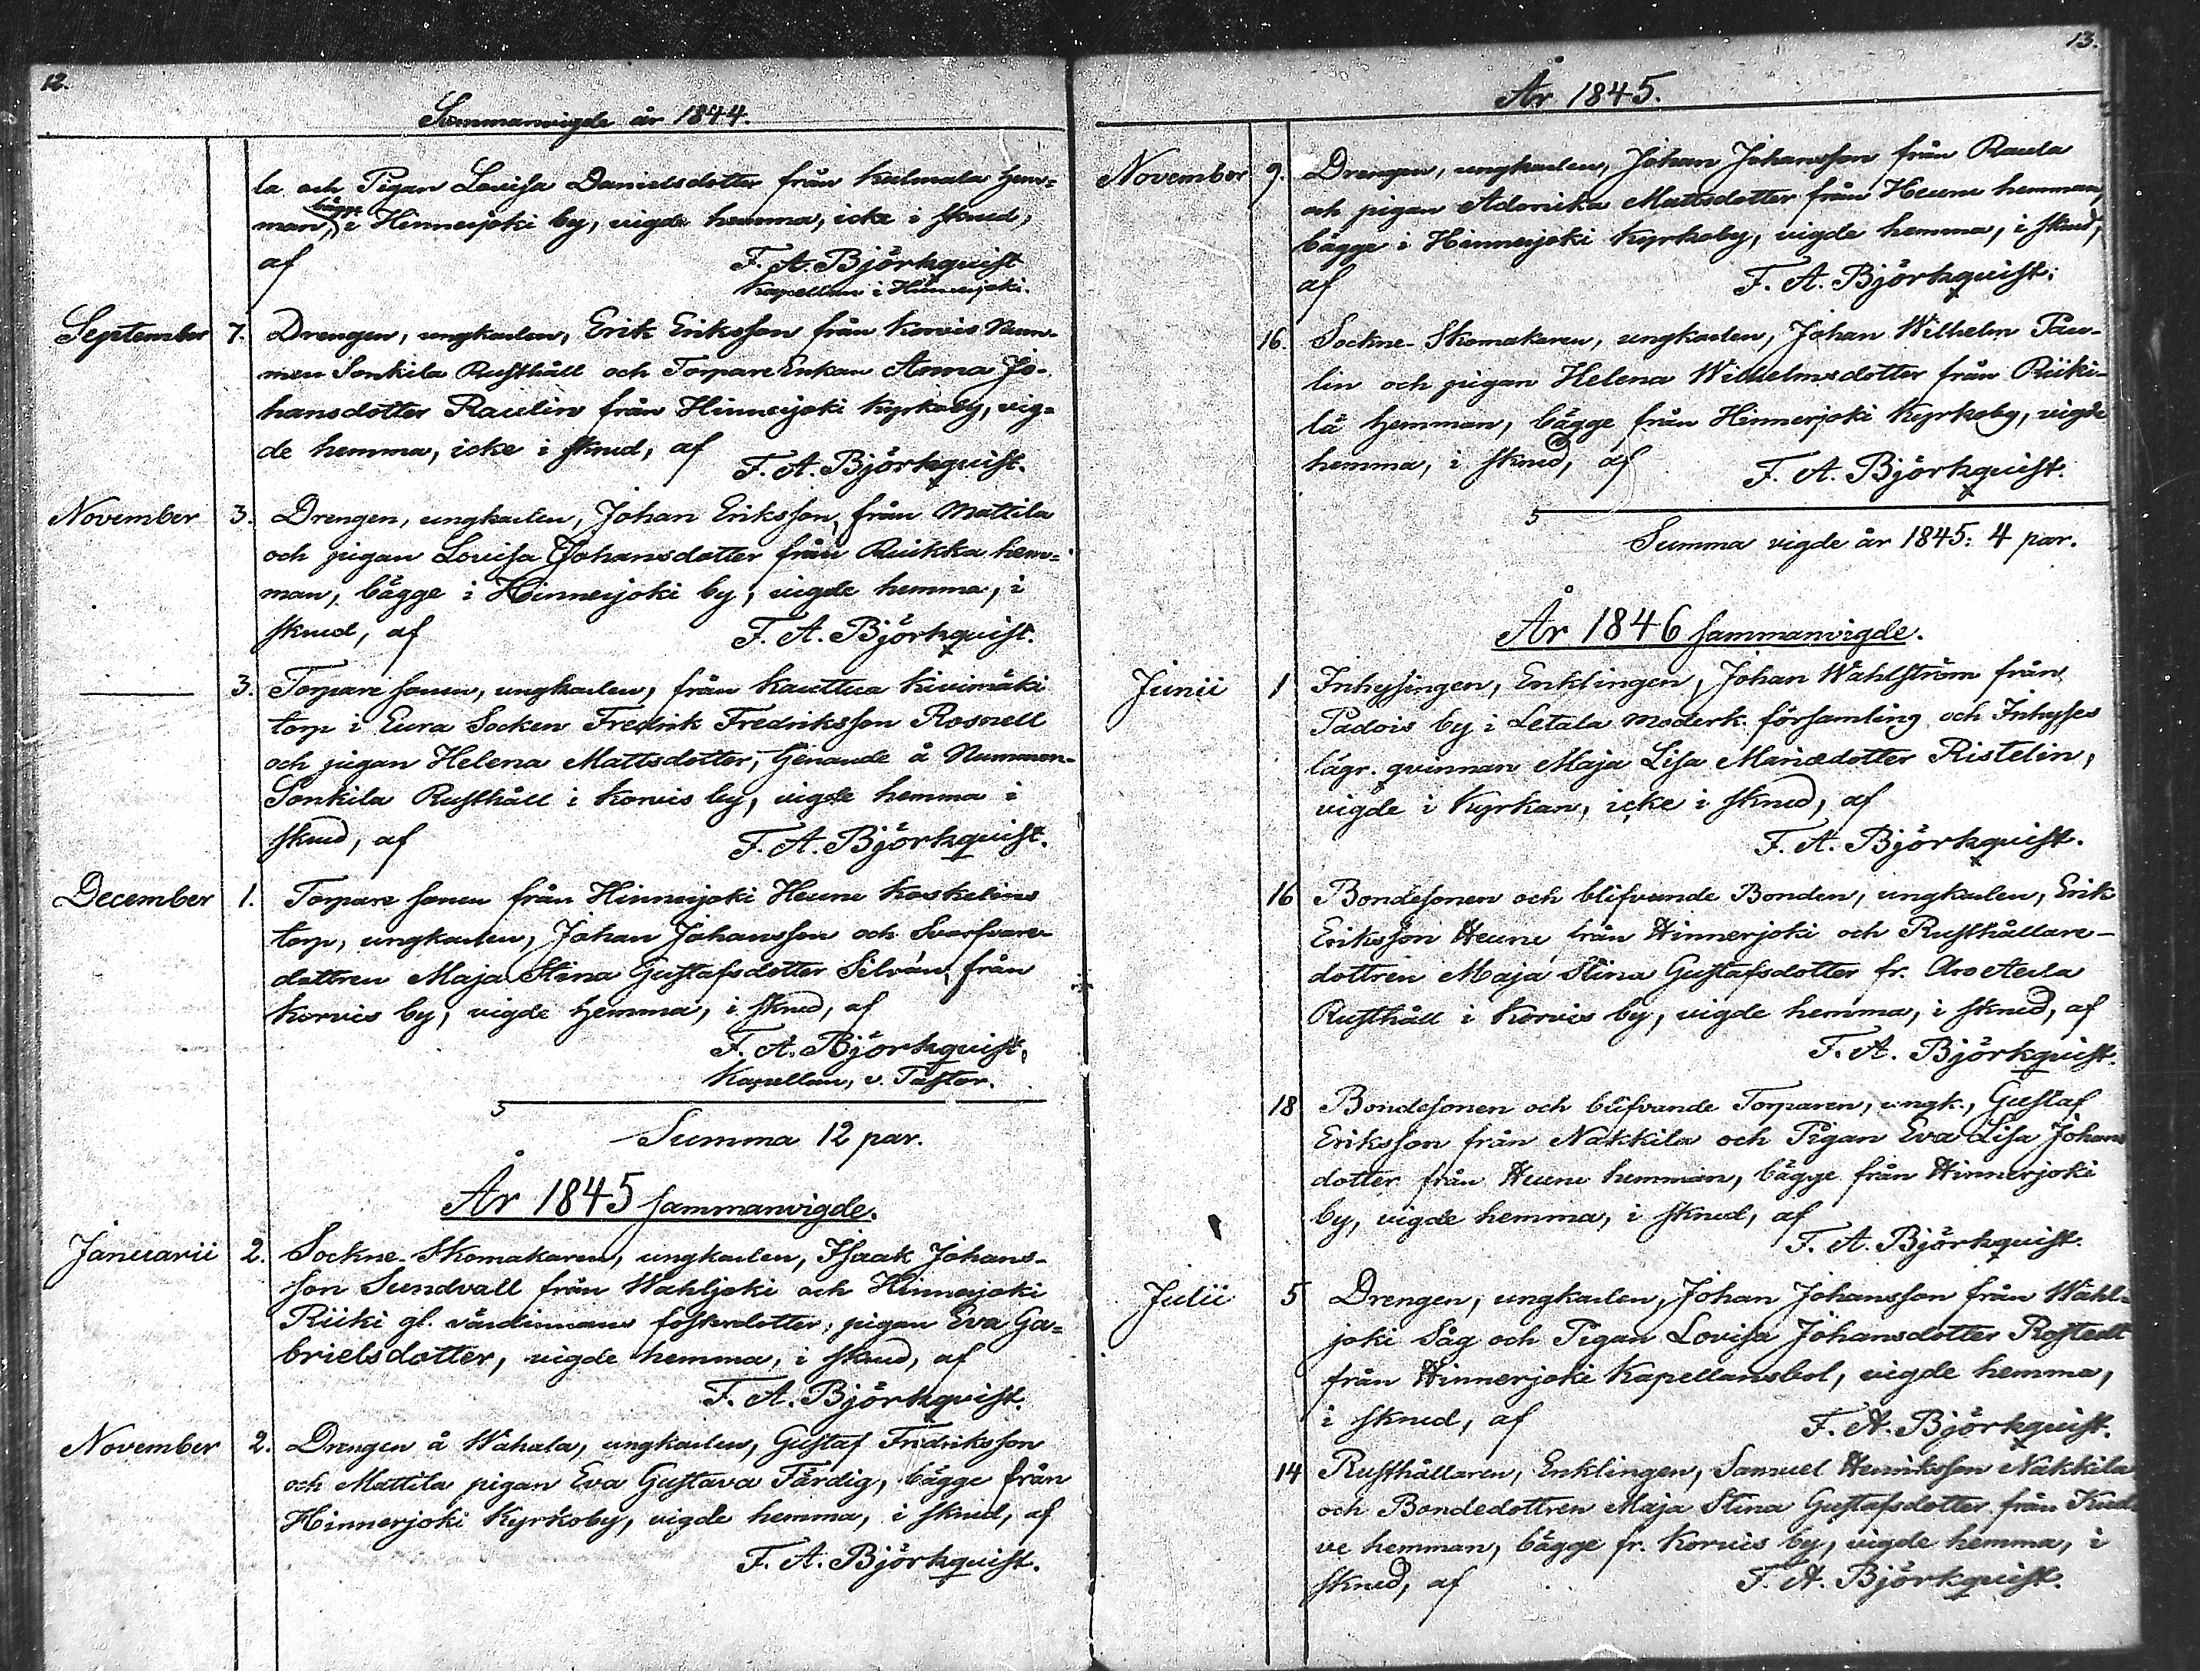 12.
Sammanvigde år 1844.
la och Pigan Lovisa Danielsdotter från Kulmala hem-
man, bägge i Hinnerjoki by, vigde hemma, icke i skrud,
af F. A. Björkqvist
Kapellan i Hinnerjoki.
September 7. Drengen, ungkarlen, Erik Eriksson från Korvis Num-
men Sonkila Rusthåll och Torpare Enkan Anna Jo-
hansdotter Raulin från Hinnerjoki Kyrkoby, vig-
de hemma, icke i skrud, af F. A. Björkqvist.
November 3. Drengen, ungkarlen, Johan Eriksson, från Mattila
och pigan Lovisa Johansdotter från Ruikka hem-
man, bägge i Hinnerjoki by, vigde hemma, i
skrud, af F. A. Björkqvist.
3. Torpare sonen, ungkarlen, från Kauttua Kivimäki
torp i Eura Socken Fredrik Fredriksson Rosnell
och pigan Helena Mattsdotter, tjenande å Nummen-
Sonkila Rusthåll i Korvis by, vigde hemma i
skrud, af F. A. Björkqvist.
December 1. Torpare sonen från Hinnerjoki Heune Koskelins
torp, ungkarlen, Johan Johansson och Svarfvare-
dottren Maja Stina Gustafsdotter Silván, från
Korvis by, vigde hemma, i skrud, af
F. A. Björkqvist,
Kapellan, v. Pastor.
Summa 12 par.
År 1845 sammanvigde.
Januarii 2. Sockne Skomakaren, ungkarlen, Isaak Johans-
son Sundvall från Wahljoki och Hinnerjoki
Riiki gl. värdinnans fosterdotter, pigan Eva Ga-
brielsdotter, vigde hemma, i skrud, af
F. A. Björkqvist.
November 2. Drengen å Wahala, ungkarlen, Gustaf Fredriksson
och Mattila pigan Eva Gustava Färdig, bägge från
Hinnerjoki Kyrkoby, vigde hemma, i skrud, af
F. A. Björkqvist.
13.
År 1845.
November 9. Drengen, ungkarlen, Johan Johansson från Raula
och pigan Adonika Mattsdotter från Heune hemman,
bägge i Hinnerjoki Kyrkoby, vigde hemma, i skrud,
af F. A. Björkqvist.
16. Sockne-Skomakaren, ungkarlen, Johan Wilhelm Pau-
lin och pigan Helena Wilhelmsdotter från Riiki-
lä hemman, bägge från Hinnerjoki Kyrkoby, vigde
hemma, i skrud, af F. A. Björkqvist.
Summa vigde år 1845: 4 par.
År 1846 sammanvigde.
Junii 1 Inhysingen, Enklingen, Johan Wahlström från
Padois by i Letala moderk. församling och Inhyses
lägr. qvinnan Maja Lisa Mariædotter Ristelin,
vigde i Kyrkan, icke i skrud, af
F. A. Björkqvist.
16 Bondesonen och blifvande Bonden, ungkarlen, Erik
Eriksson Heune från Hinnerjoki och Rusthållare-
dottren Maja Stina Gustafsdotter fr. Aro Anla
Rusthåll i Korvis by, vigde hemma, i skrud, af
F. A. Björkqvist.
18 Bondesonen och blifvande Torparen, ungk., Gustaf
Eriksson från Nakkila och Pigan Eva Lisa Johans
dotter från Heune hemman, bägge från Hinnerjoki
by, vigde hemma, i skrud, af
F. A. Björkqvist.
Julii 5 Drengen, ungkarlen, Johan Johansson från Wahl-
joki Såg och Pigan Lovisa Johansdotter Rostedt
från Hinnerjoki Kapellansbol, vigde hemma,
i skrud, af F. A. Björkqvist.
14 Rusthållaren, Enklingen, Samuel Henriksson Nakkila
och Bondedottren Maja Stina Gustafsdotter från
ve hemman, bägge fr. Korvis by, vigde hemma, i
skrud, af F. A. Björkqvist.